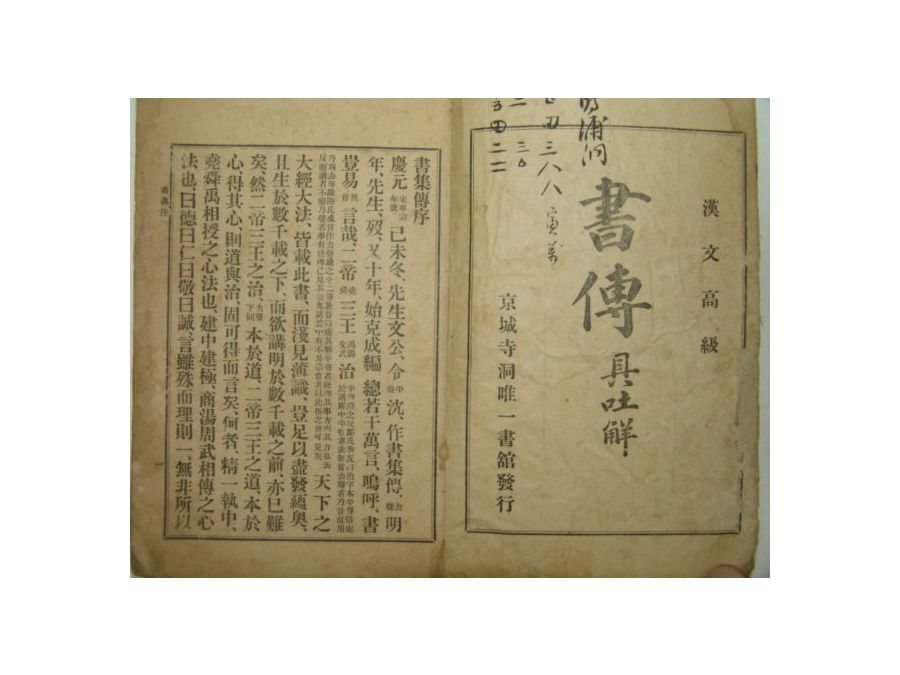 漢文高級
書傳具吐解
京城寺洞唯一書舘發行
三八八
三〇
田二二
書集傳序
慶元宋寧宗年號己未冬、先生文公、令平聲沈、作書集傳、去聲明
年、先生、歿、又十年、始克成編、總若干萬言、嗚呼、書
豈易異音言哉、二帝堯舜三王禹湯文武治
天下之
大經大法、皆載此書、而淺見薄識、豈足以盡發蘊奧、
且生於數千載之下、而欲講明於數千載之前、亦已難
矣、然二帝三王之治、去聲下同本於道、二帝三王之道、本於
心、得其心、則道與治、固可得而言矣、何者、精一執中、
堯舜禹相授之心法也、建中建極、商湯周武相傳之心
法也、曰德曰仁曰敬曰誠、言雖殊而理則一、無非所以
書傳序